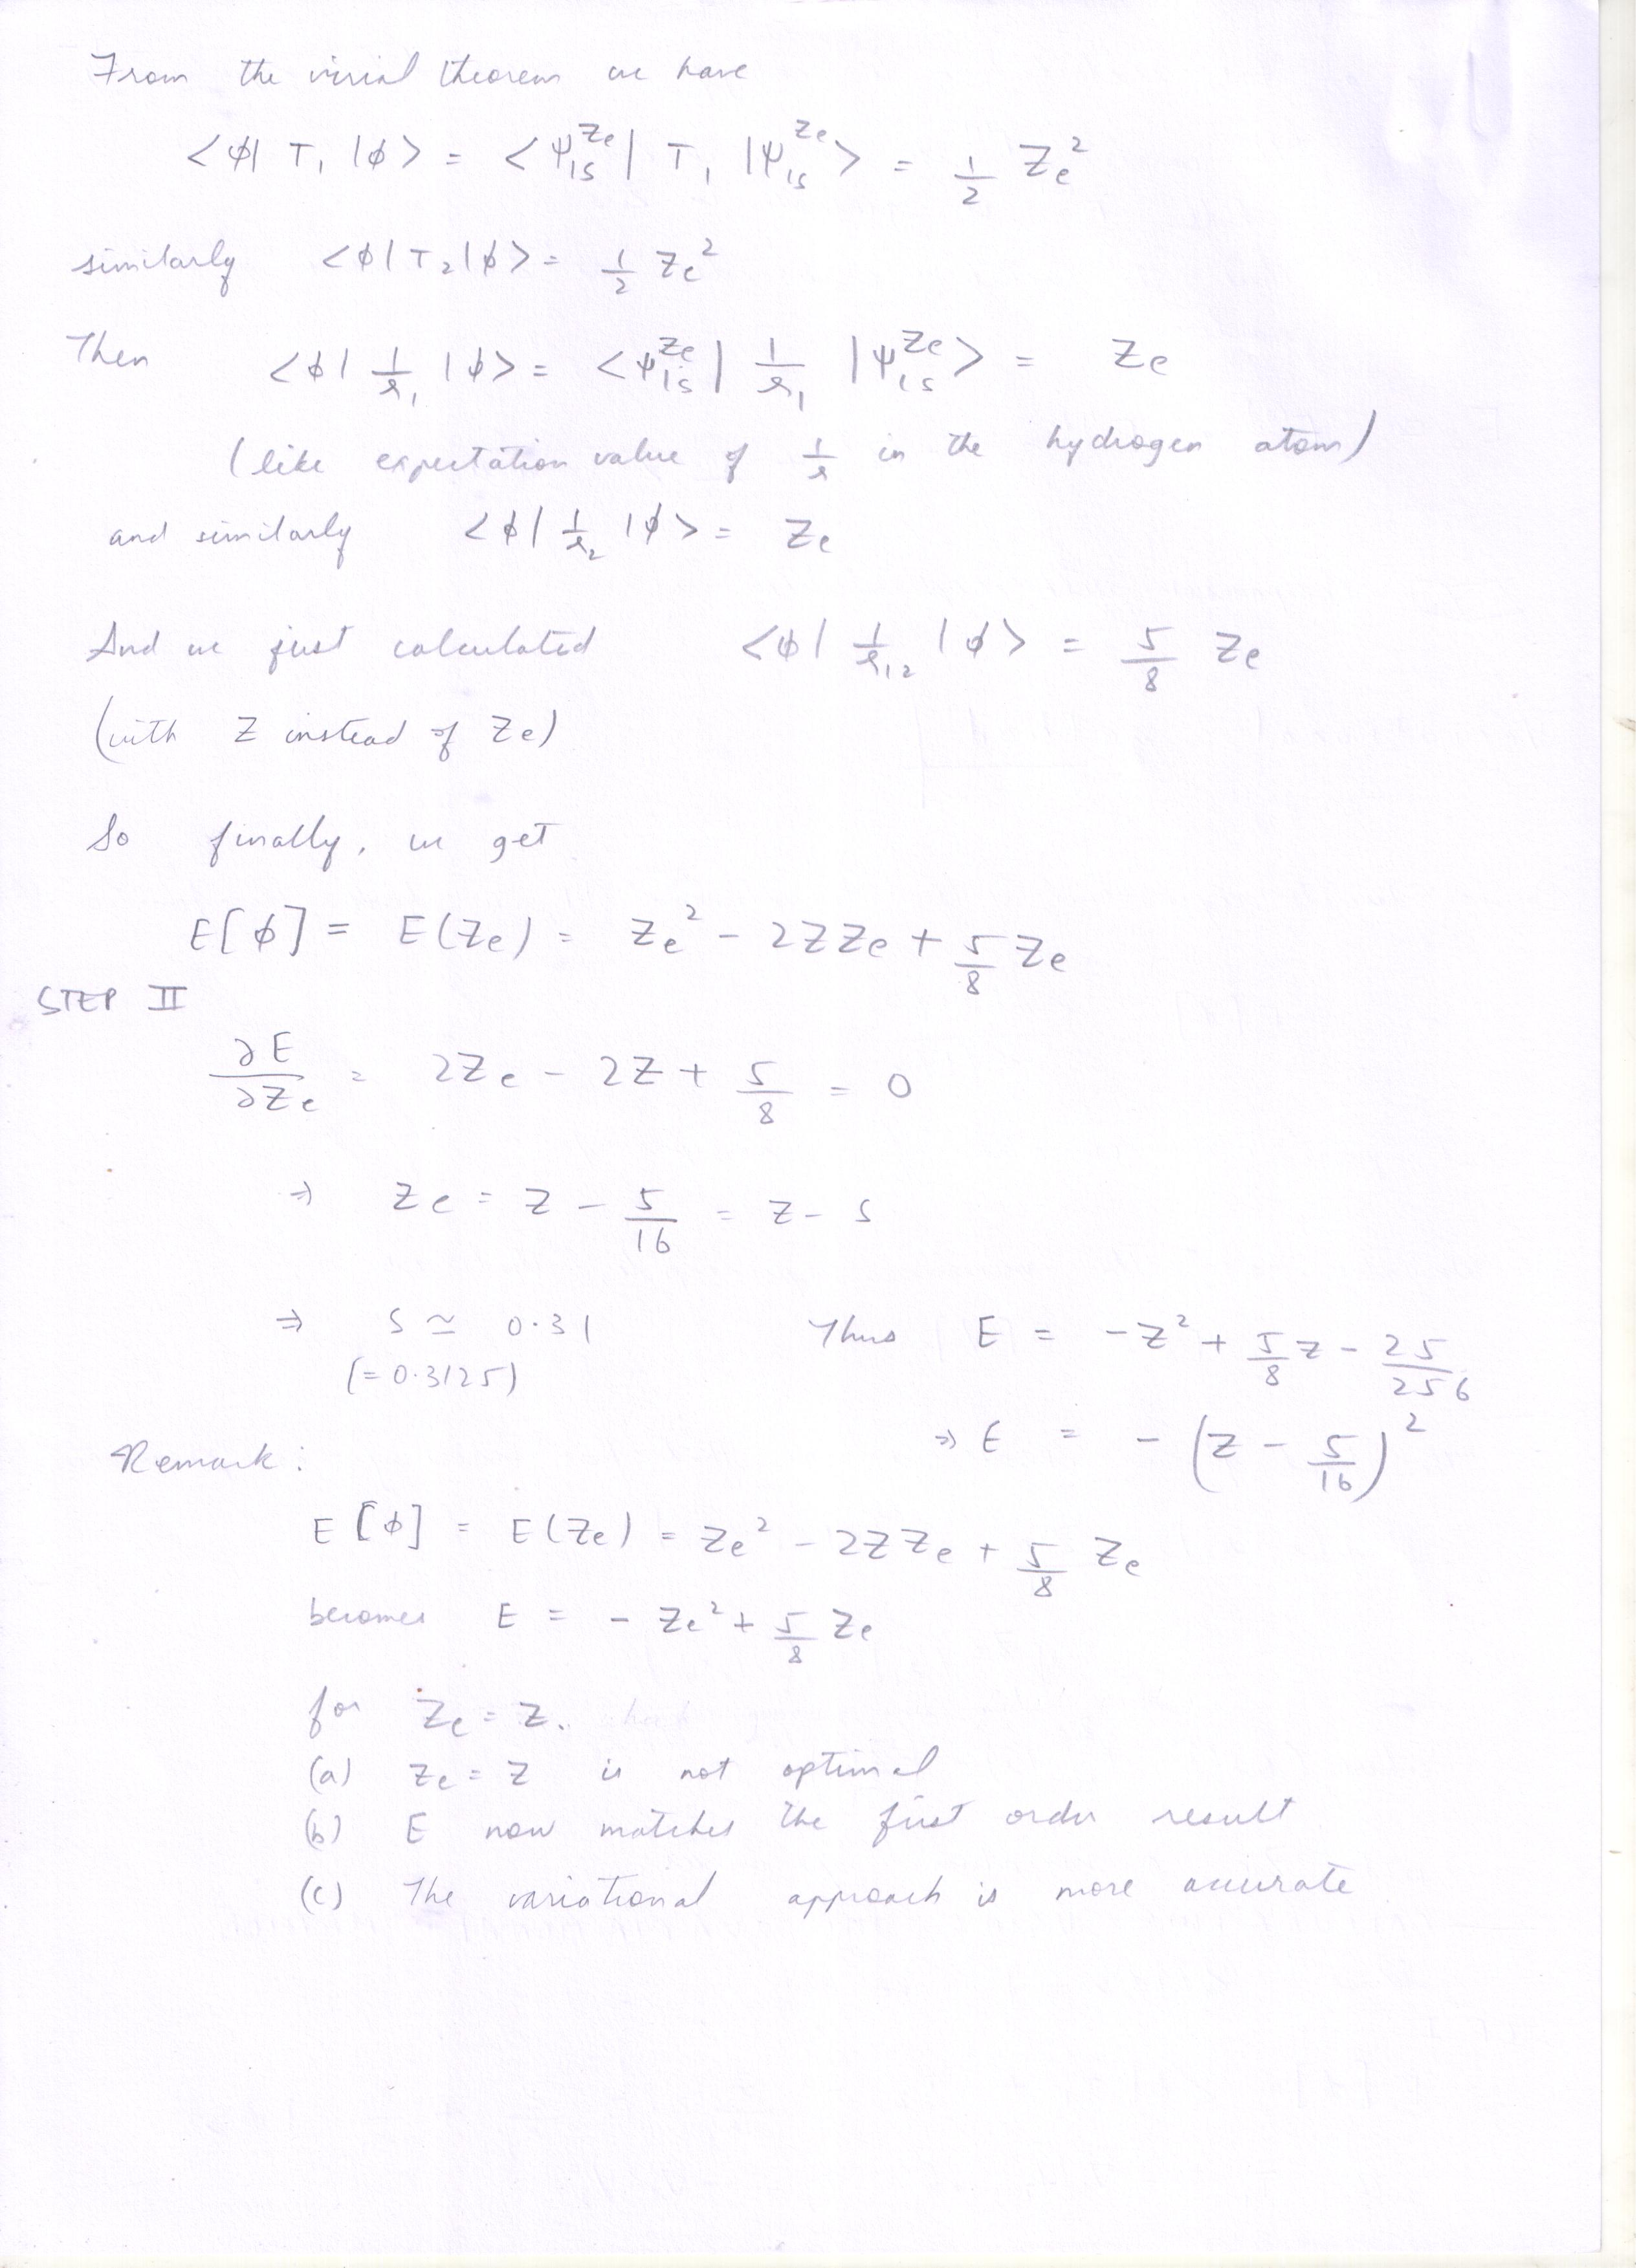 From the virial theorem we have
<ϕ| T₁ |ϕ> = <ψ₁ₛ^Ze| T₁ |ψ₁ₛ^Ze> = 1/2 Ze²
similarly <ϕ|T₂|ϕ> = 1/2 Ze²
Then <ϕ| 1/r₁ |ϕ> = <ψ₁ₛ^Ze| 1/r₁ |ψ₁ₛ^Ze> = Ze
(like expectation value of 1/r in the hydrogen atom)
and similarly <ϕ| 1/r₂ |ϕ> = Ze
And we just calculated <ϕ| 1/r₁₂ |ϕ> = 5/8 Ze
(with Z instead of Ze)
So finally, we get
E[ϕ] = E(Ze) = Ze² - 2ZZe + 5/8 Ze
STEP II
∂E/∂Ze = 2Ze - 2Z + 5/8 = 0
⇒ Ze = Z - 5/16 = Z - S
⇒ S ≃ 0.31 Thus E = -Z² + 5/8 Z - 25/256
(= 0.3125)
⇒ E = - (Z - 5/16)²
Remark:
E[ϕ] = E(Ze) = Ze² - 2ZZe + 5/8 Ze
becomes E = - Ze² + 5/8 Ze
for Ze = Z.
(a) Ze = Z is not optimal
(b) E now matches the first order result
(c) The variational approach is more accurate